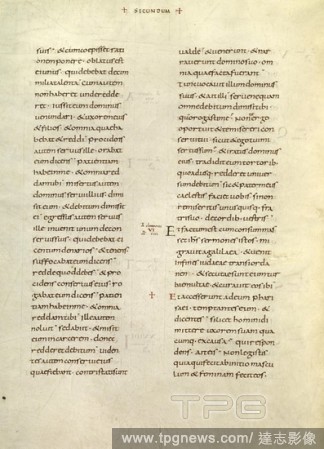 + SECUNDUM +
suis · &cumcoepiss&rati
onemponere · oblatusest
eiunus · quidebebatdecem
miliatalenta cumautem
nonhaber& underedde
r& · iussiteumdominus
uenundari · &uxoremeius
&filios · &omniaquaeha
bebat&reddi · procidens
autemseruusille · orabat
eumdicens · patientiam
habeinme · &omniaredd
damtibi · misertusautem
dominusseruiillius · dimi
siteum · &debitumdimisit
ei · egressusautemseruus
ille inuenitunumdecon
seruissuis · quidebebatei
centumdenarios · &tenens
suffocabateumdicens
reddequoddebes · &pro
cidensconseruuseius · ro
gabateumdicens patien
tiamhabeinme · &omnia
reddamtibi · illeautem
noluit · sedabiit · &misit
eumincarcerem · donec
redder&debitum · uiden
tesautemconserui
quaefiebant · contristatisunt
ualde · &uenerunt · &nar
rauerunt dominosuo · om
niaquaefactaerant
tuncuocauitillumdominus
suus · &aitilli · seruenequam
omnedebitumdimisitibi
quoniamrogastime · Nonergo
oportuit&temisereri con
seruitui · sicut&egotui
&iratusdominus
eius · tradiditeumtortorib
redder&uniuer
sumdebitum · sic&patermeus
caelestis faci&uobis · sinon
remiseritisunusquisq · fra
trisuo · decordib · uestris
Etfactumestcumconsumma
ss&ihs · sermonesistos · mi
grauitagalilaea · &uenit
infinesiudaeae transiorda
nen · &secutaesunteumtur
baemultae · &curauiteosibi
+
Etaccesseruntadeum phari
saei · temptanteseum · &
dicentes · silic&homini di
mittere uxoremsuamqua
cumq · excausa quirespon
dens · aiteis · Nonlegistis
quiaquifecitabinitio mascu
lum &feminam feciteos ·
TPG
www.tpgnews.com / 達志影像